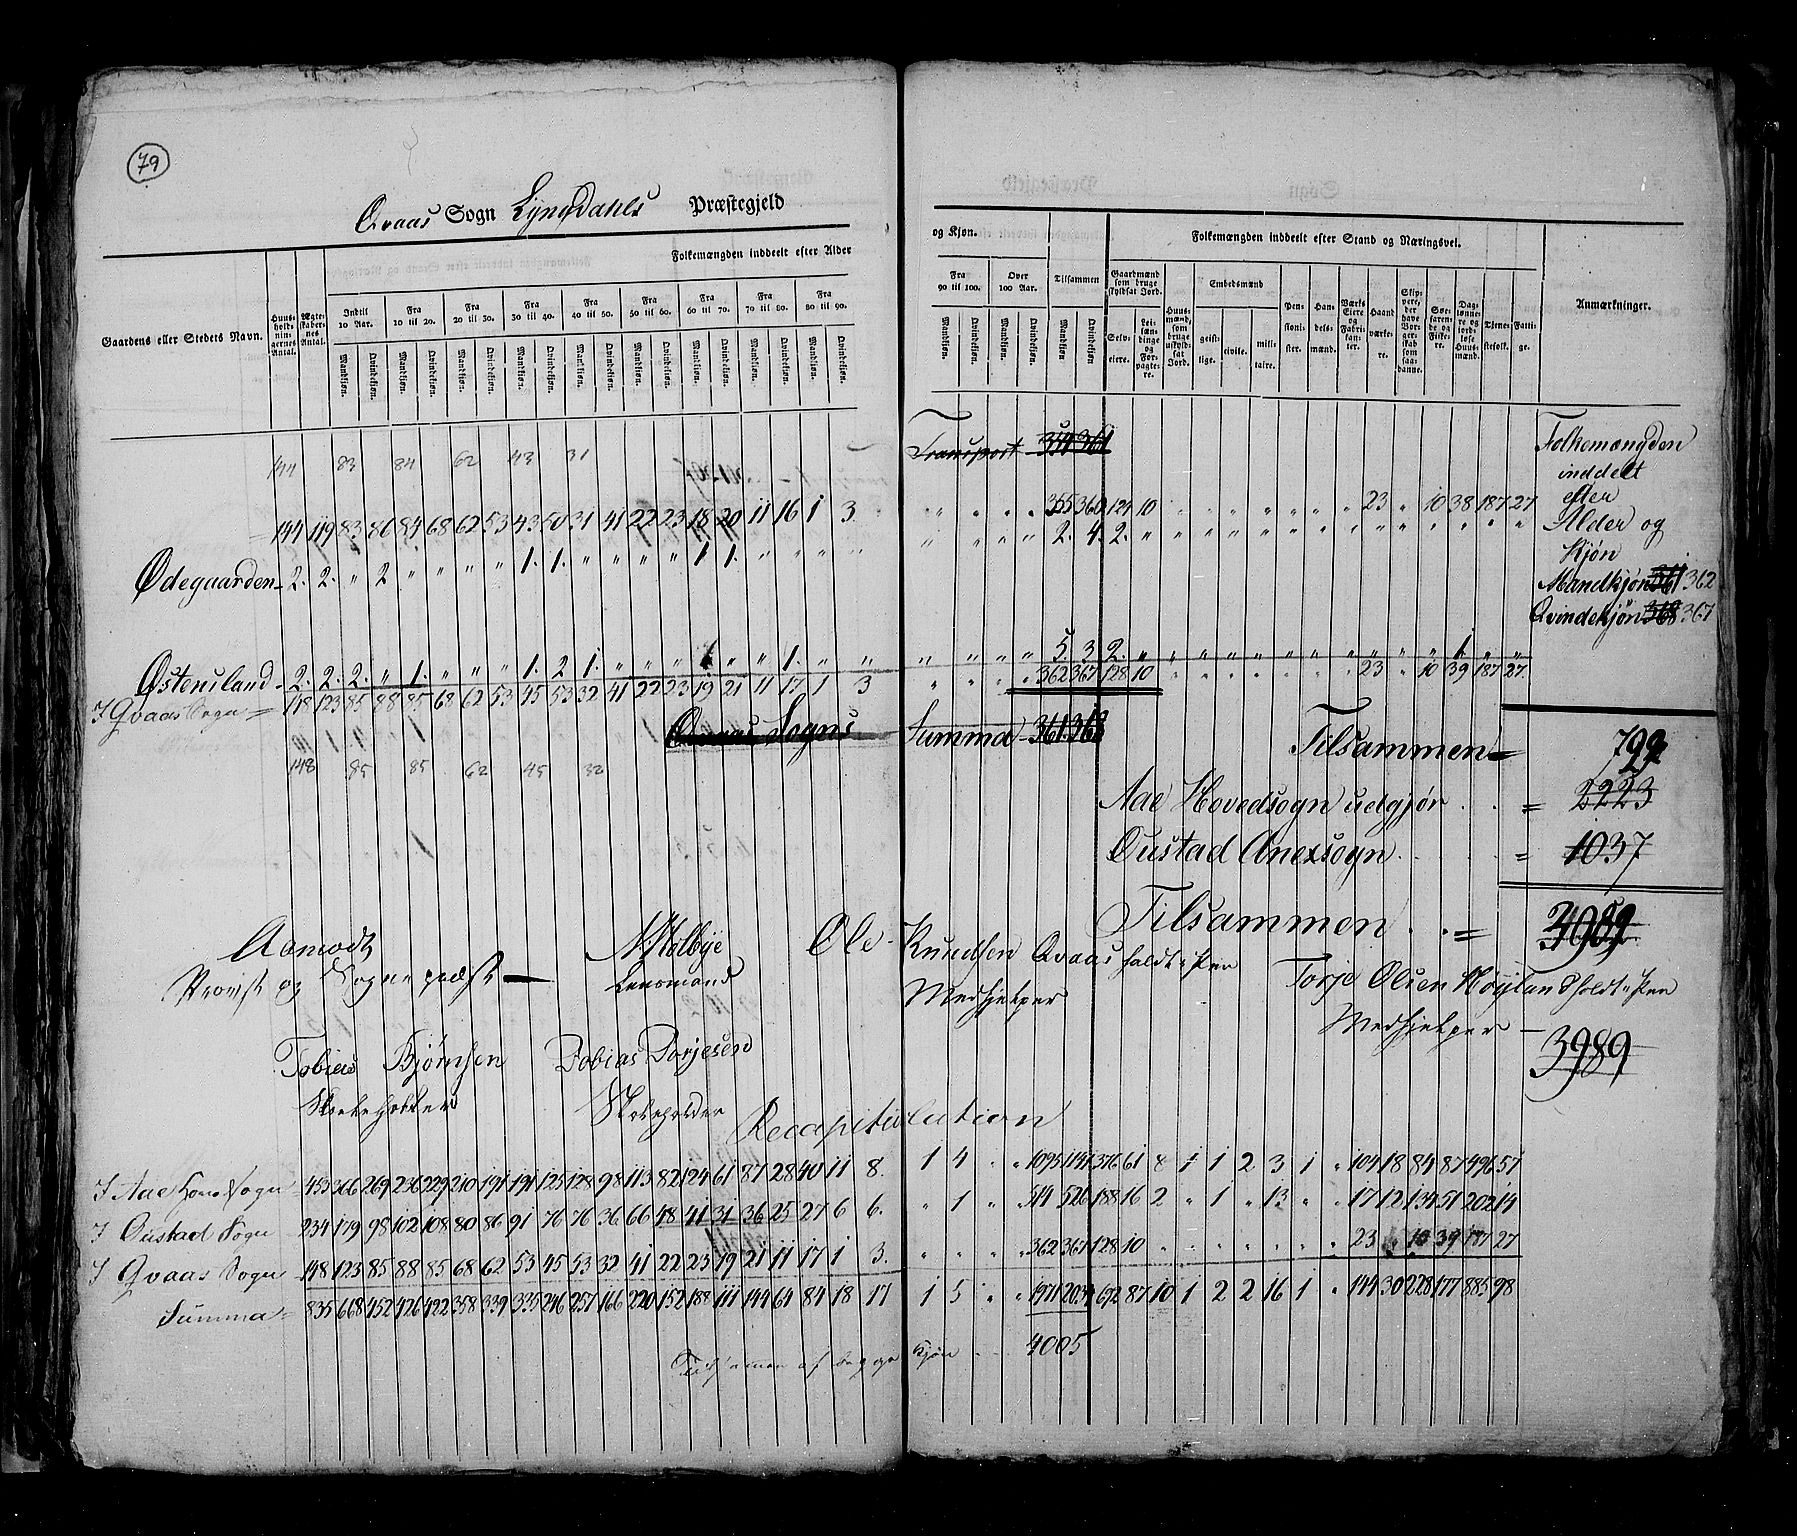 79
Qvaas Sogn Lyngdahls Præstegjeld
Folkemængden inddeelt efter Alder og Kjøn.
Folkemængden inddeelt efter Stand og Næringsvei.
Gaardens eller Stedets Navn.
Huusholdningernes Antal.
Ægteskabernes Antal.
Indtil 10 Aar.
Fra 10 til 20.
Fra 20 til 30.
Fra 30 til 40.
Fra 40 til 50.
Fra 50 til 60.
Fra 60 til 70.
Fra 70 til 80.
Fra 80 til 90.
Fra 90 til 100.
Over 100 Aar.
Tilsammen
Mandkjøn. Qvindekjøn. Mandkjøn. Qvindekjøn. Mandkjøn. Qvindekjøn. Mandkjøn. Qvindekjøn. Mandkjøn. Qvindekjøn. Mandkjøn. Qvindekjøn. Mandkjøn. Qvindekjøn. Mandkjøn. Qvindekjøn. Mandkjøn. Qvindekjøn. Mandkjøn. Qvindekjøn. Mandkjøn. Qvindekjøn. Mandkjøn. Qvindekjøn.
Gaardmænd som bruge skyldsat Jord.
Selveiere.
Leilændinge og Forpagtere.
Huusmænd, som bruge uskyldsat Jord.
Embedsmænd
geistlige.
civile.
militaire.
Pensionister.
Handelsmænd.
Værks Eiere og Fabrikanter.
Haandværkere.
Skippere, der have Borgerskab som saadanne.
Søefarende og Fiskere.
Daglønnere og jordløse Huusmænd.
Tjenestefolk.
Fattige.
Anmærkninger.
Transport 354 361
144 83 84 62 43 31
144 119 83 86 84 68 62 53 43 50 31 41 22 23 18 20 11 16 1 3 " " " " 355 360 124 10 " " " " " " " 23 " 10 38 187 27
Ødegaarden 2. 2. " 2 " " " " 1. 1. " " " " 1 1. " " " " " " " " 2. 4. 2. " " " " " " " " " " " " " "
Østensland 2. 2. 2. " 1. " " " 1. 2 1. " " " 1 " " 1. " " " " " " 5. 3 2. " " " " " " " " " " " 1. " "
I Qvaas Sogn = 148 123 85 88 85 68 62 53 45 53 32 41 22 23 19 21 11 17 1 3 " " " " 362 367 128 10 " " " " " " " 23 " 10 39 187 27
Qvaas Sogns Summa 361 368
148 85 85 62 45 32
Folkemængden
inddelt
efter
Alder og
Kjøn
Mandkjøn 361 362
Qvindekjøn 368 367
Tilsammen 729
Aae Hovedsogn udgjør = 2223
Qustad Anexsogn = 1037
Tilsammen = 3989
Aamodt
Provst og Sognepræst
Holbye
Lensmand
Ole Knudsen Qvaas holdt i Pen
Medhjelper
Torje Olsen Høyland holdt i Pen
Medhjelper
3989
Tobias Bjørnsen
Tobias Torjesen
Recapitulation
I Aae Hovd Sogn 453 366 269 236 229 210 191 191 125 128 98 113 82 124 61 87 28 40 11 8. 1 4 " " 1095 1141 376 61 8 1 1 2 3 1 " 104 18 84 87 496 57
I Qustad Sogn 234 179 98 102 108 80 86 91 76 76 36 66 48 41 31 36 25 27 6 6. " 1 " " 514 526 188 16 2 " 1 " 13 " " 17 12 134 51 202 14
I Qvaas Sogn 148 123 85 88 85 68 62 53 45 53 32 41 22 23 19 21 11 17 1 3. " " " " 362 367 128 10 " " " " " " " 23 " 10 39 187 27
Summa 835 668 452 426 422 358 339 335 246 257 166 220 152 188 111 144 64 84 18 17 1 5 " " 1971 2034 692 87 10 1 2 2 16 1 " 144 30 228 177 885 98
Tilsammen af begge Kjøn 4005